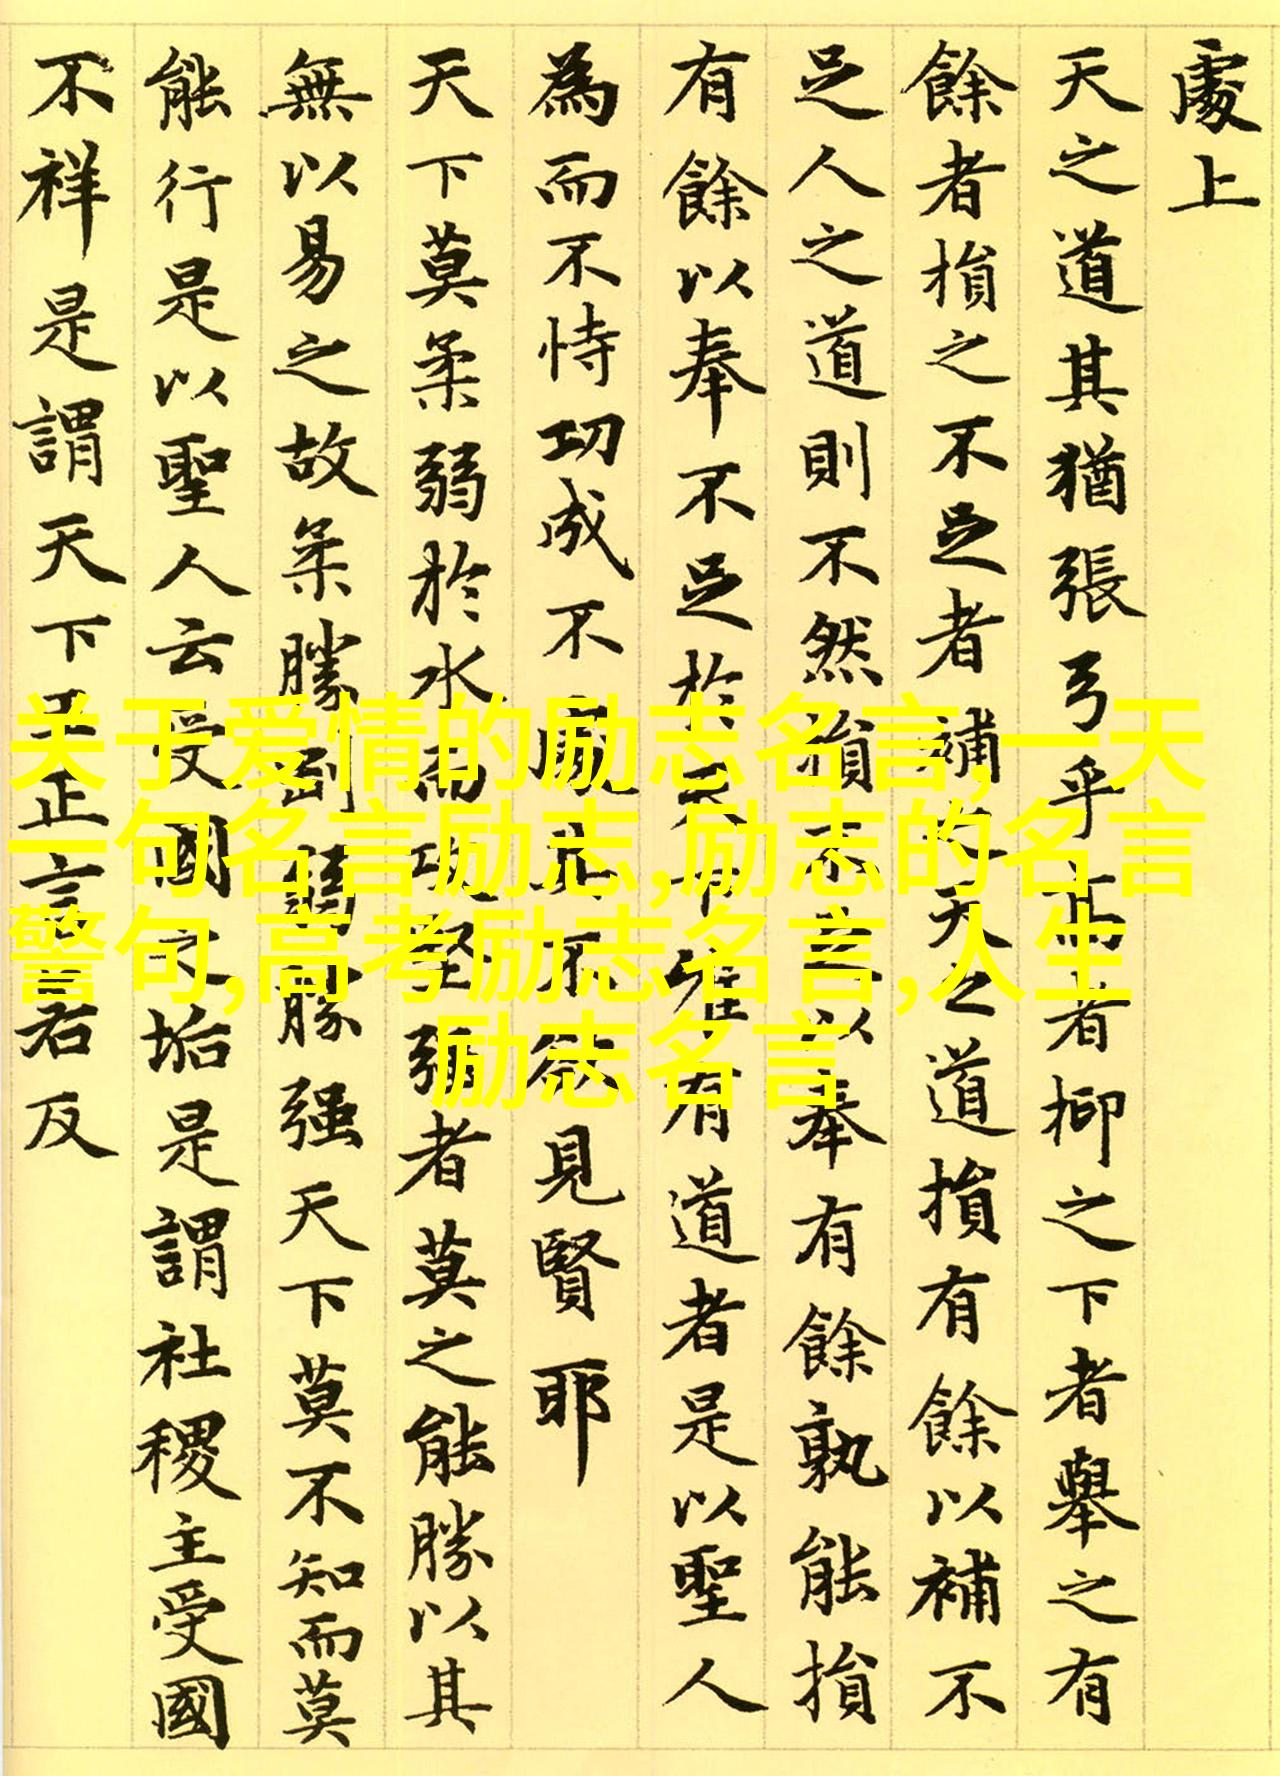 處上
天之道其猶張弓乎高者抑之下者舉之有
餘者損之不足者補之天之道損有餘以補不
足人之道則不然損不足以奉有餘孰能損
有餘以奉不足於天下唯有道者是以聖人
為而不恃功成不處其不欲見賢耶
天下莫柔弱於水而攻堅強者莫之能勝以其
無以易之故柔勝剛弱勝强天下莫不知而莫
能行是以聖人云受國之垢是謂社稷主受國
不祥是謂天下王正言若反
关于爱情的励志名言,一天
一句名言励志,励志的名言
警句,高考励志名言,人生
励志名言